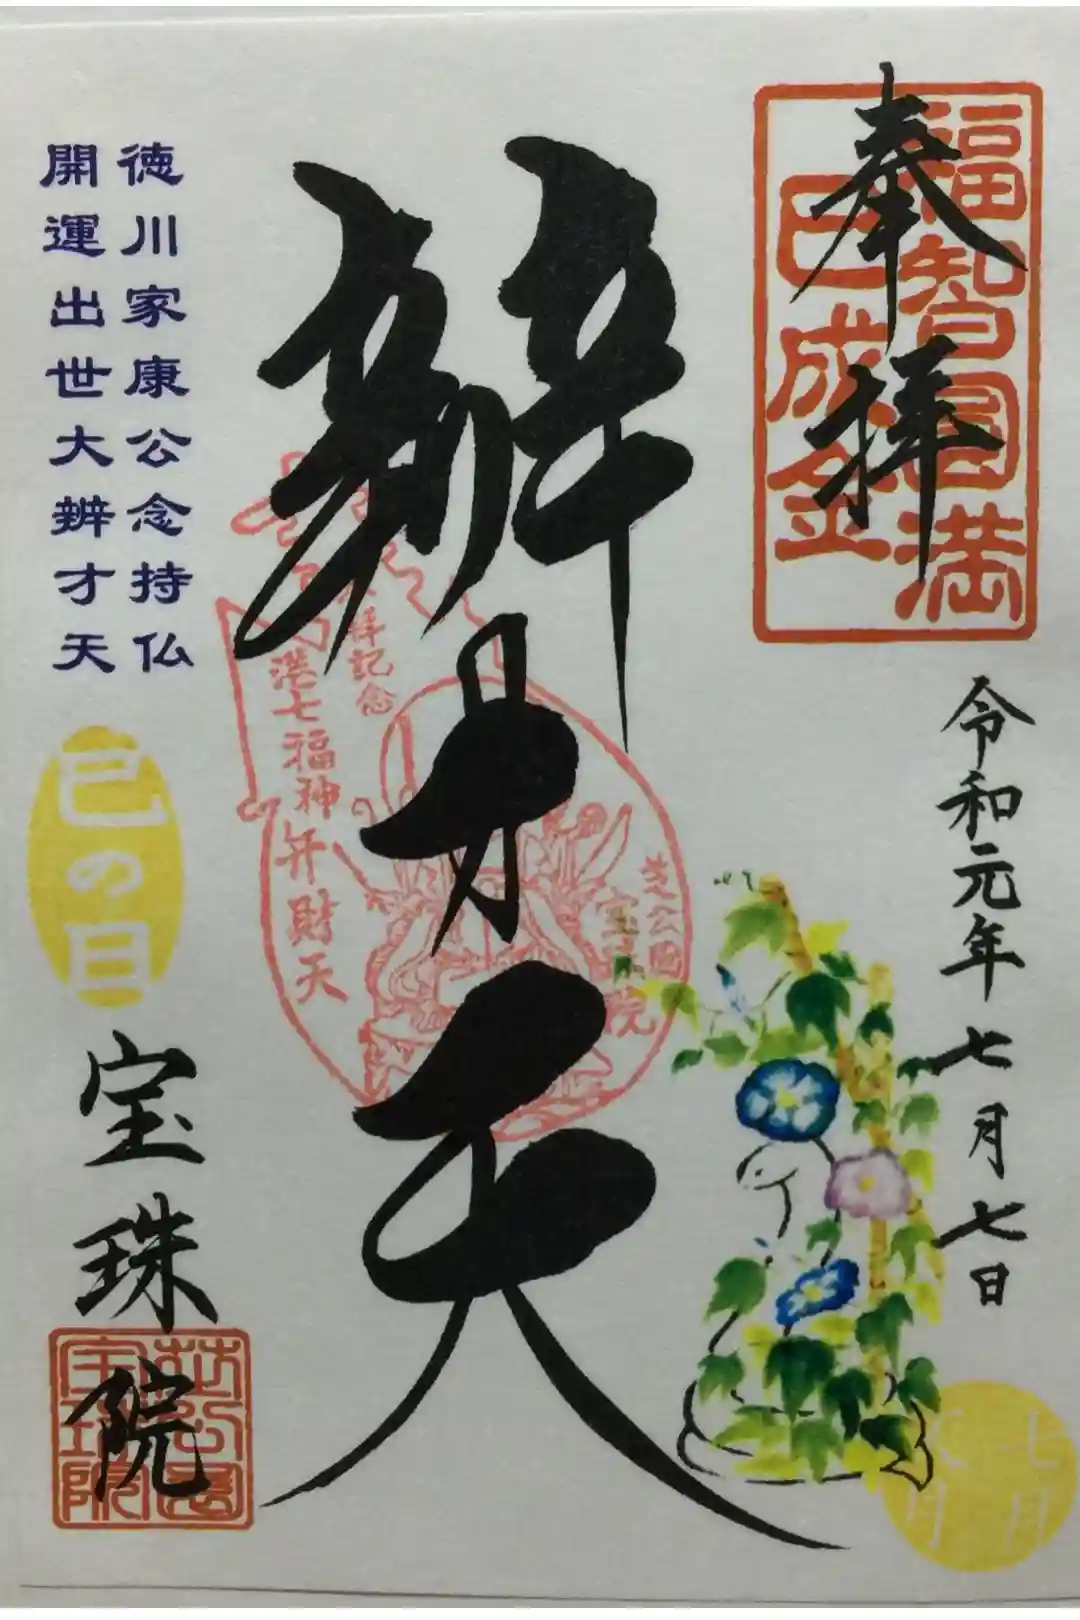 奉拝
福智円満
巳成金
令和元年七月七日
辨才天
参拝記念
港七福神弁財天
芝公園
宝珠院
徳川家康公念持仏
開運出世大辨才天
巳の日
宝珠院
芝公園
宝珠院
七月